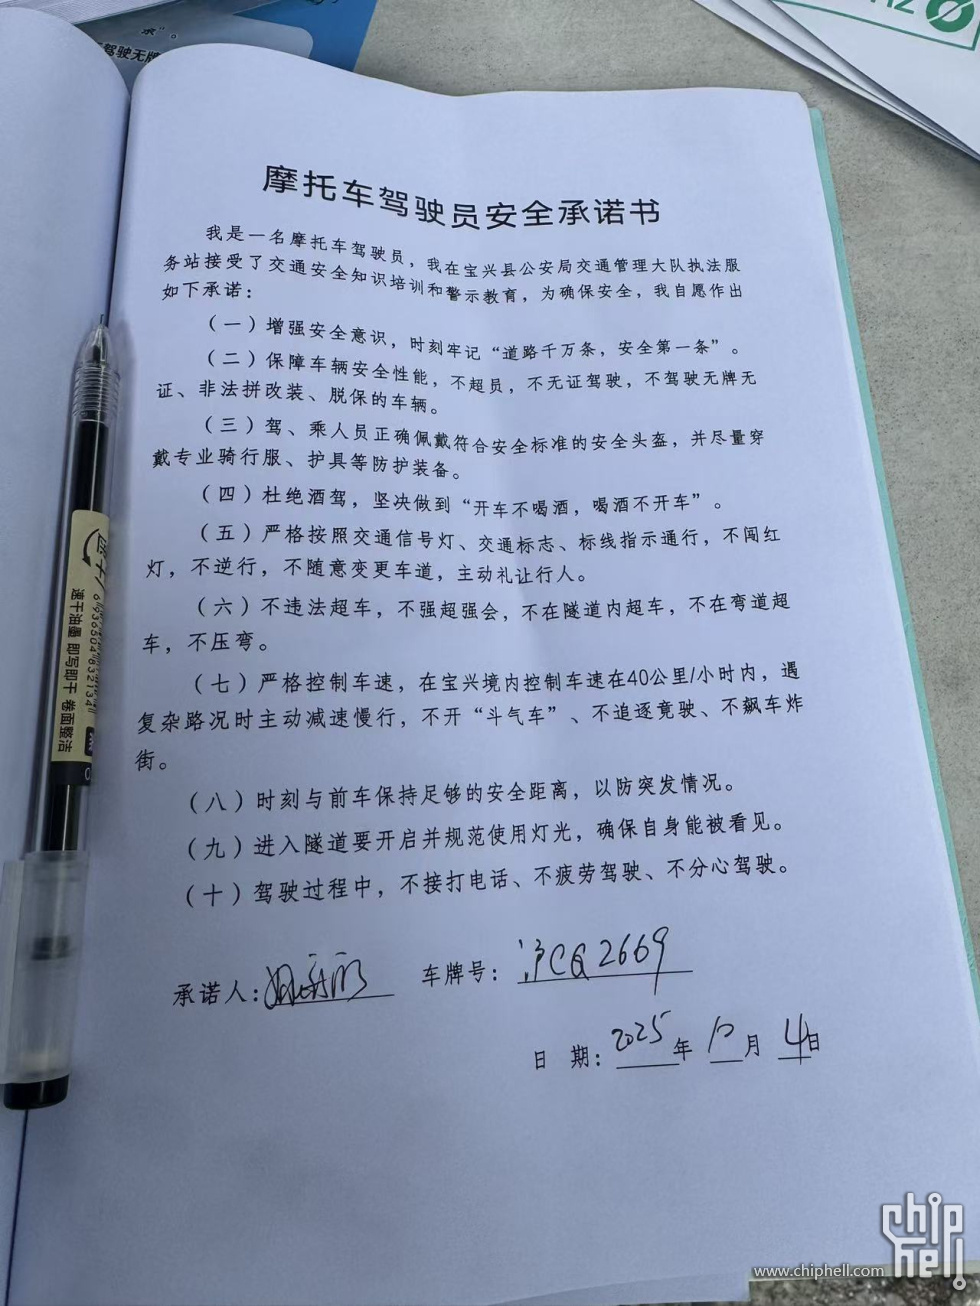 驾驶无牌
摩托车驾驶员安全承诺书
我是一名摩托车驾驶员，我在宝兴县公安局交通管理大队执法服
务站接受了交通安全知识培训和警示教育，为确保安全，我自愿作出
如下承诺：
（一）增强安全意识，时刻牢记“道路千万条，安全第一条”。
（二）保障车辆安全性能，不超员，不无证驾驶，不驾驶无牌无
证、非法拼改装、脱保的车辆。
（三）驾、乘人员正确佩戴符合安全标准的安全头盔，并尽量穿
戴专业骑行服、护具等防护装备。
（四）杜绝酒驾，坚决做到“开车不喝酒，喝酒不开车”。
（五）严格按照交通信号灯、交通标志、标线指示通行，不闯红
灯，不逆行，不随意变更车道，主动礼让行人。
（六）不违法超车，不强超强会，不在隧道内超车，不在弯道超
车，不压弯。
（七）严格控制车速，在宝兴境内控制车速在40公里/小时内，遇
复杂路况时主动减速慢行，不开“斗气车”、不追逐竞驶、不飙车炸
街。
（八）时刻与前车保持足够的安全距离，以防突发情况。
（九）进入隧道要开启并规范使用灯光，确保自身能被看见。
（十）驾驶过程中，不接打电话、不疲劳驾驶、不分心驾驶。
承诺人： 车牌号：沪CQ2669
日 期：2025年10月4日
速干油墨 即写即干 卷面整洁
chip
hell
www.chiphell.com